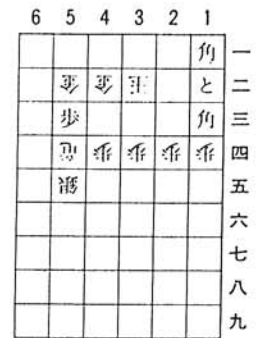 6 5 4 3 2 1
一
金 金 玉 と 二
歩 三
歩 歩 歩 歩 四
銀 五
六
七
八
九